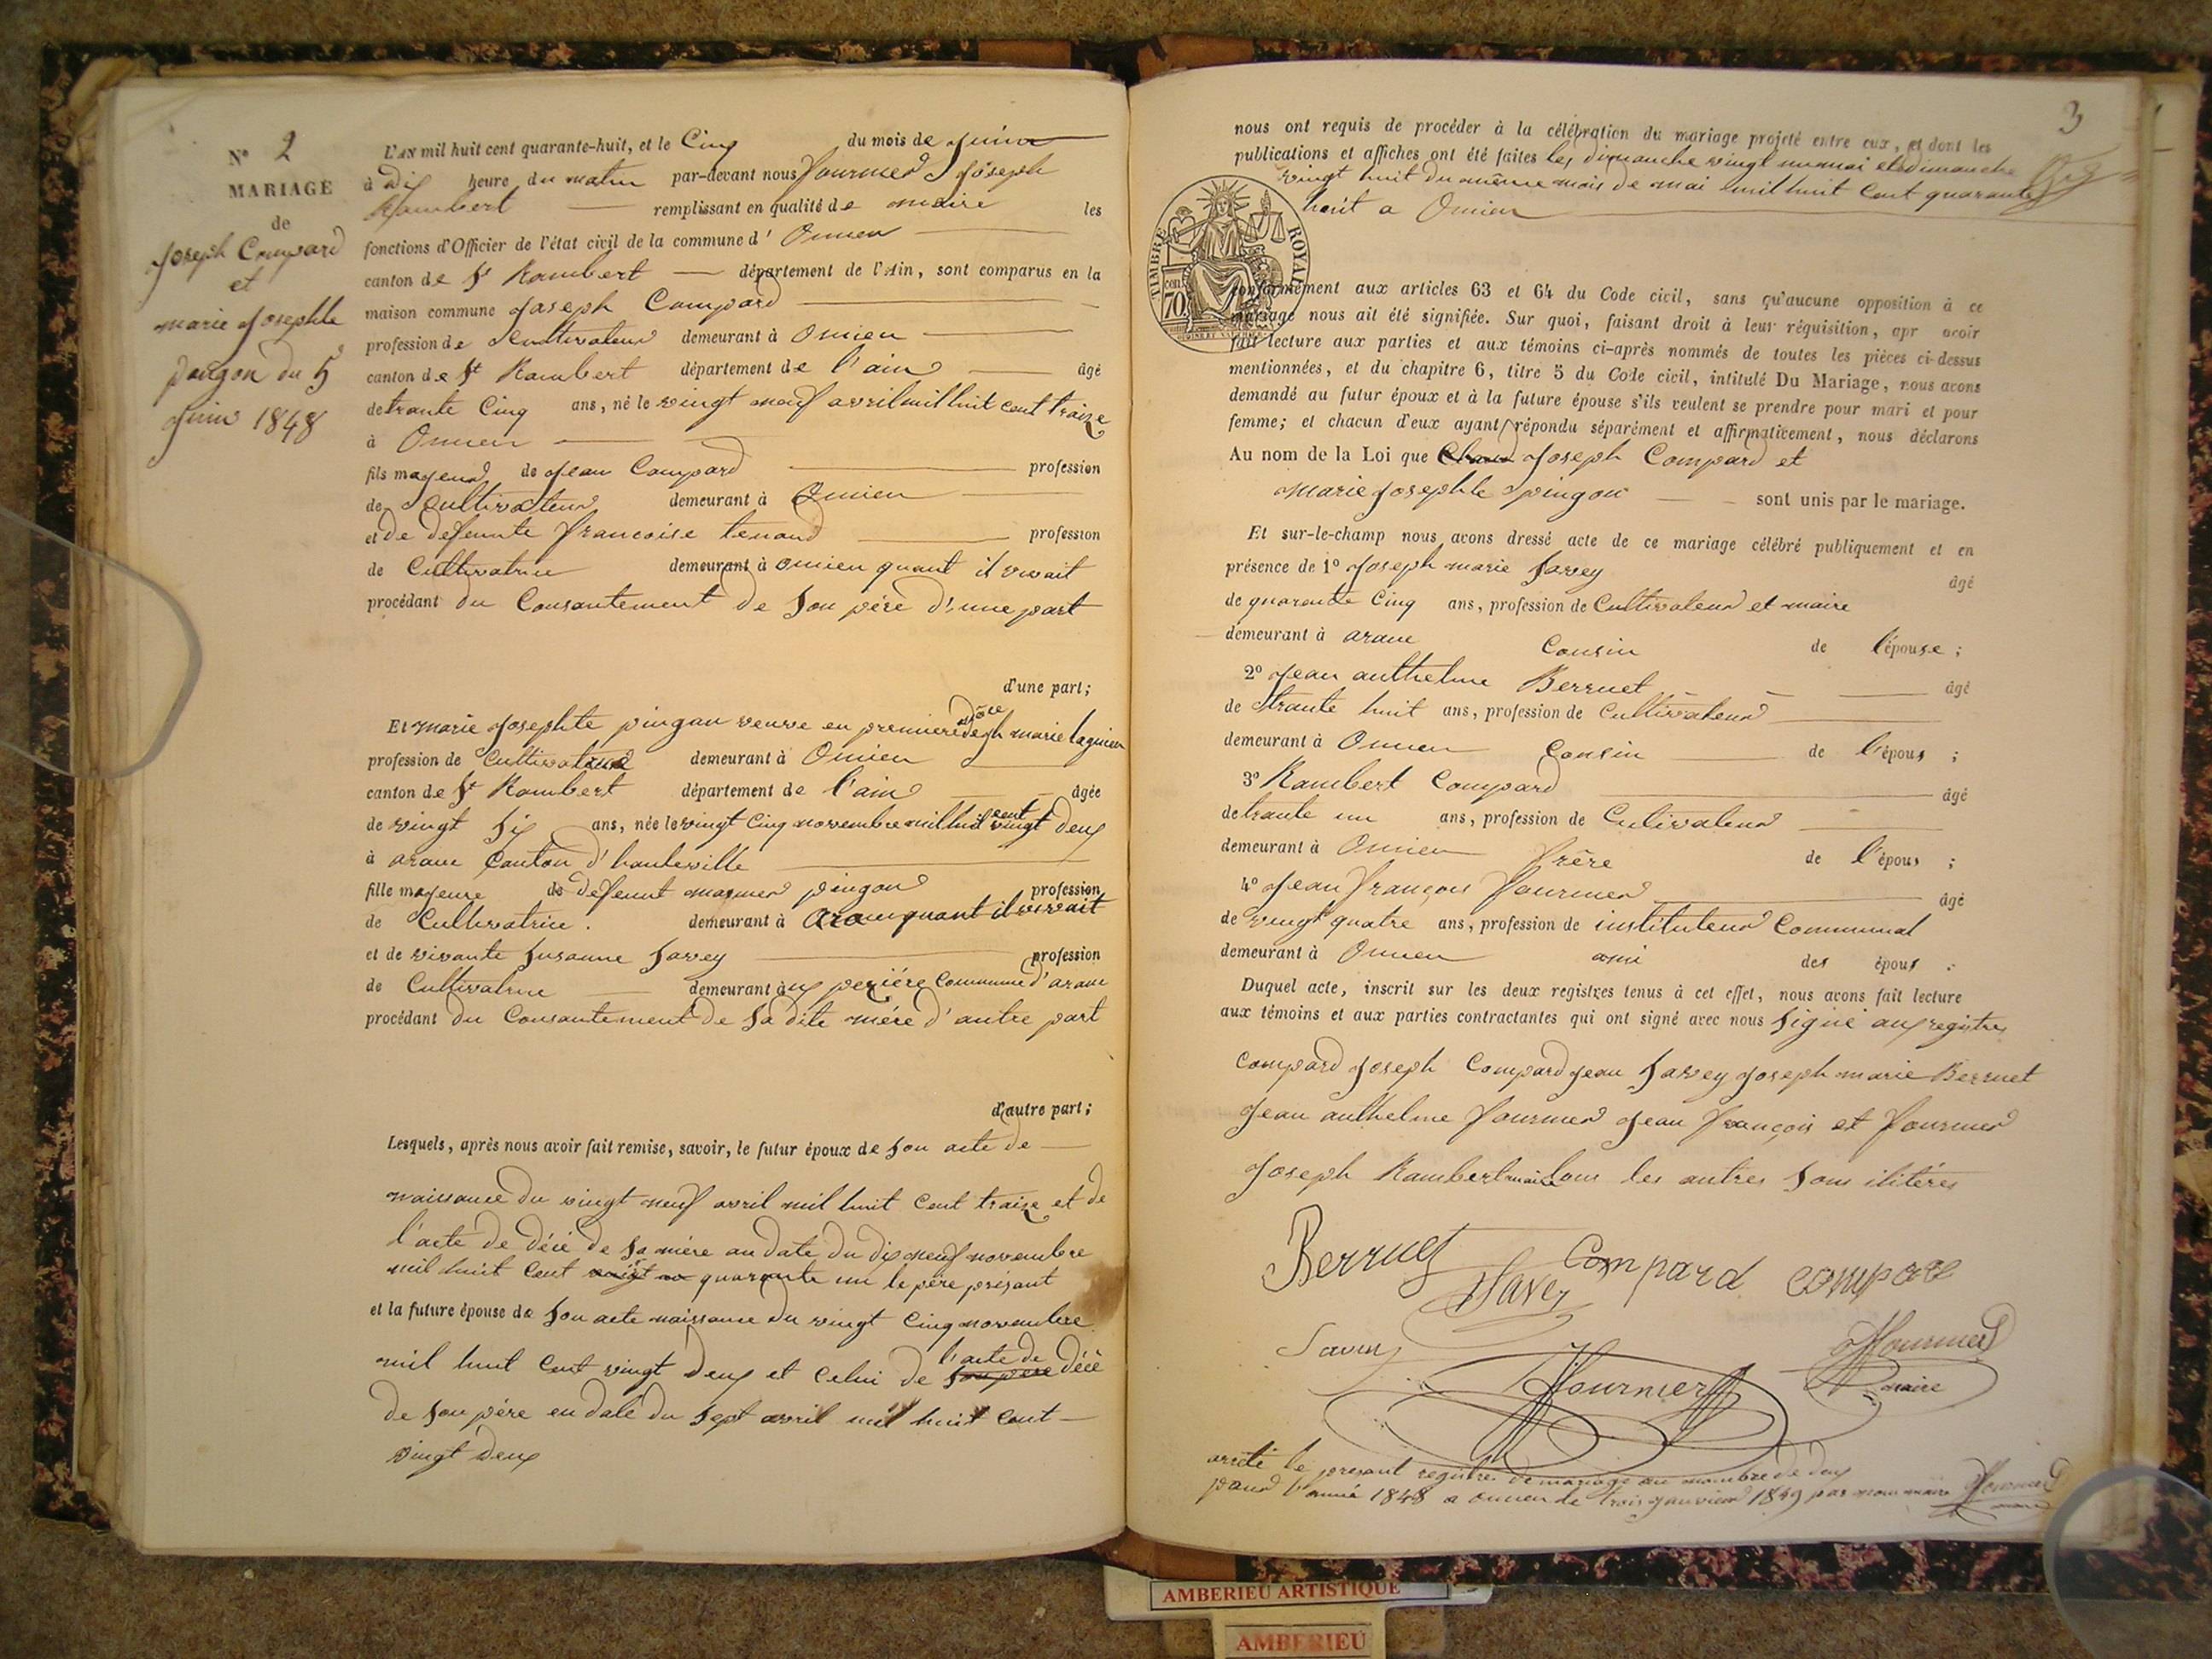 N° 2
MARIAGE
de
Joseph Compard
et
marie Josephte
pingon du 5
Juin 1848
L'AN mil huit cent quarante-huit, et le Cinq du mois de Juin
à Dix heure du matin par-devant nous fournier Joseph
Rambert remplissant en qualité de maire les
fonctions d'Officier de l'état civil de la commune d' Oncieu
canton de St Rambert département de l'Ain, sont comparus en la
maison commune Joseph Compard
profession de Cultivateur demeurant à Oncieu
canton de St Rambert département de l'ain âgé
de trante Cinq ans, né le vingt neuf avril mil huit cent traize
à Oncieu
fils majeur de Jean Compard profession
de Cultivateur demeurant à Oncieu
et de defeunte francoise tenand profession
de Cultivatrice demeurant à oncieu quant il vivait
procédant du Consantement de son père d'une part
d'une part;
Et marie Josephte pingon veuve en premiere nôce de Jh marie laguien
profession de Cultivatrice demeurant à Oncieu
canton de St Rambert département de l'ain âgée
de vingt six ans, née le vingt Cinq novembre mil huit cent vingt deux
à aranc Canton d'hauteville
fille majeure de defeunt marie pingon profession
de Cultivatrice . demeurant à aranc quant il vivait
et de vivante Susanne Savey profession
de Cultivatrice demeurant à Commune d'aranc
procédant du Consantement de Sa dite mére d'autre part
d'autre part;
Lesquels, après nous avoir fait remise, savoir, le futur époux de son acte de
naissance du vingt neuf avril mil huit Cent traize et de
l'acte de décè de sa mére au date du dix neuf novembre
mil huit Cent quarante un le père présant
et la future épouse de son acte naissance du vingt Cinq novembre
mil huit Cent vingt deux et celui de son pere l'acte de décè
de son pére en date du sept avril mil huit cent
vingt deux
3
nous ont requis de procéder à la célébration du mariage projeté entre eux, et dont les
publications et affiches ont été faites les dimanche vingt un mai et dimanche
vingt huit du même mois de mai mil huit Cent quarante
huit a Oncieu
TIMBRE ROYAL
70 cen.
conformément aux articles 63 et 64 du Code civil, sans qu'aucune opposition à ce
mariage nous ait été signifiée. Sur quoi, faisant droit à leur réquisition, apr avoir
fait lecture aux parties et aux témoins ci-après nommés de toutes les pièces ci-dessus
mentionnées, et du chapitre 6, titre 5 du Code civil, intitulé Du Mariage, nous avons
demandé au futur époux et à la future épouse s'ils veulent se prendre pour mari et pour
femme; et chacun d'eux ayant répondu séparément et affirmativement, nous déclarons
Au nom de la Loi que Joseph Compard et
Marie Josephte pingon sont unis par le mariage.
Et sur-le-champ nous avons dressé acte de ce mariage célébré publiquement et en
présence de 1° Joseph marie Savey âgé
de quarante Cinq ans, profession de Cultivateur et maire
demeurant à aranc Cousin de l'épouse ;
2° Jean anthelme Berruet âgé
de trante huit ans, profession de Cultivateur
demeurant à Oncieu Cousin de l'épous ;
3° Rambert Compard âgé
de trante un ans, profession de Cutivateur
demeurant à Oncieu frère de l'épous ;
4° Jean françois fournier âgé
de vingt quatre ans, profession de instituteur Communal
demeurant à Oncieu ami des épous ;
Duquel acte, inscrit sur les deux registres tenus à cet effet, nous avons fait lecture
aux témoins et aux parties contractantes qui ont signé avec nous signé aux registres
Compard Joseph Compard Jean Savey Joseph marie Berruet
Jean anthelme fournier Jean françois et fournier
Joseph Rambert maire tous les autres sons ilitérés
Berruet Compard compard
Savey
Savey fournier
Fournier maire
arrété le presant registre de mariage au nombre de deux
pour l'année 1848 a oncieu le trois janvier 1849 par nous maire fournier
maire
AMBERIEU ARTISTIQUE
AMBERIEU